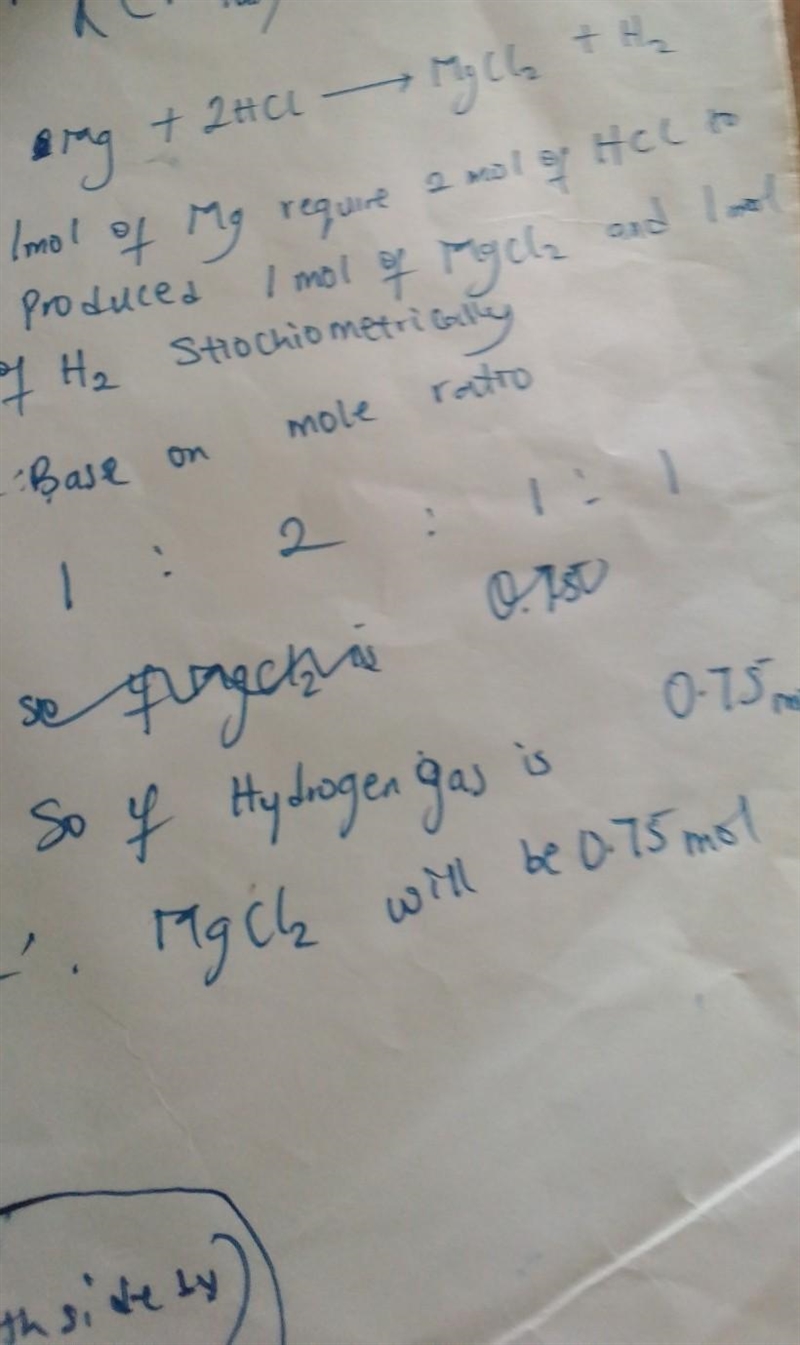 Mg + 2HCl → MgCl₂ + H₂
1mol of Mg require 2 mol of HCl to
produced 1 mol of MgCl₂ and 1 mol
of H₂ Stiochiometrically
∴ Base on mole ratio
1 : 2 : 1 : 1
0.750
0.75
So if Hydrogen gas is
∴ MgCl₂ will be 0.75 mol
side by